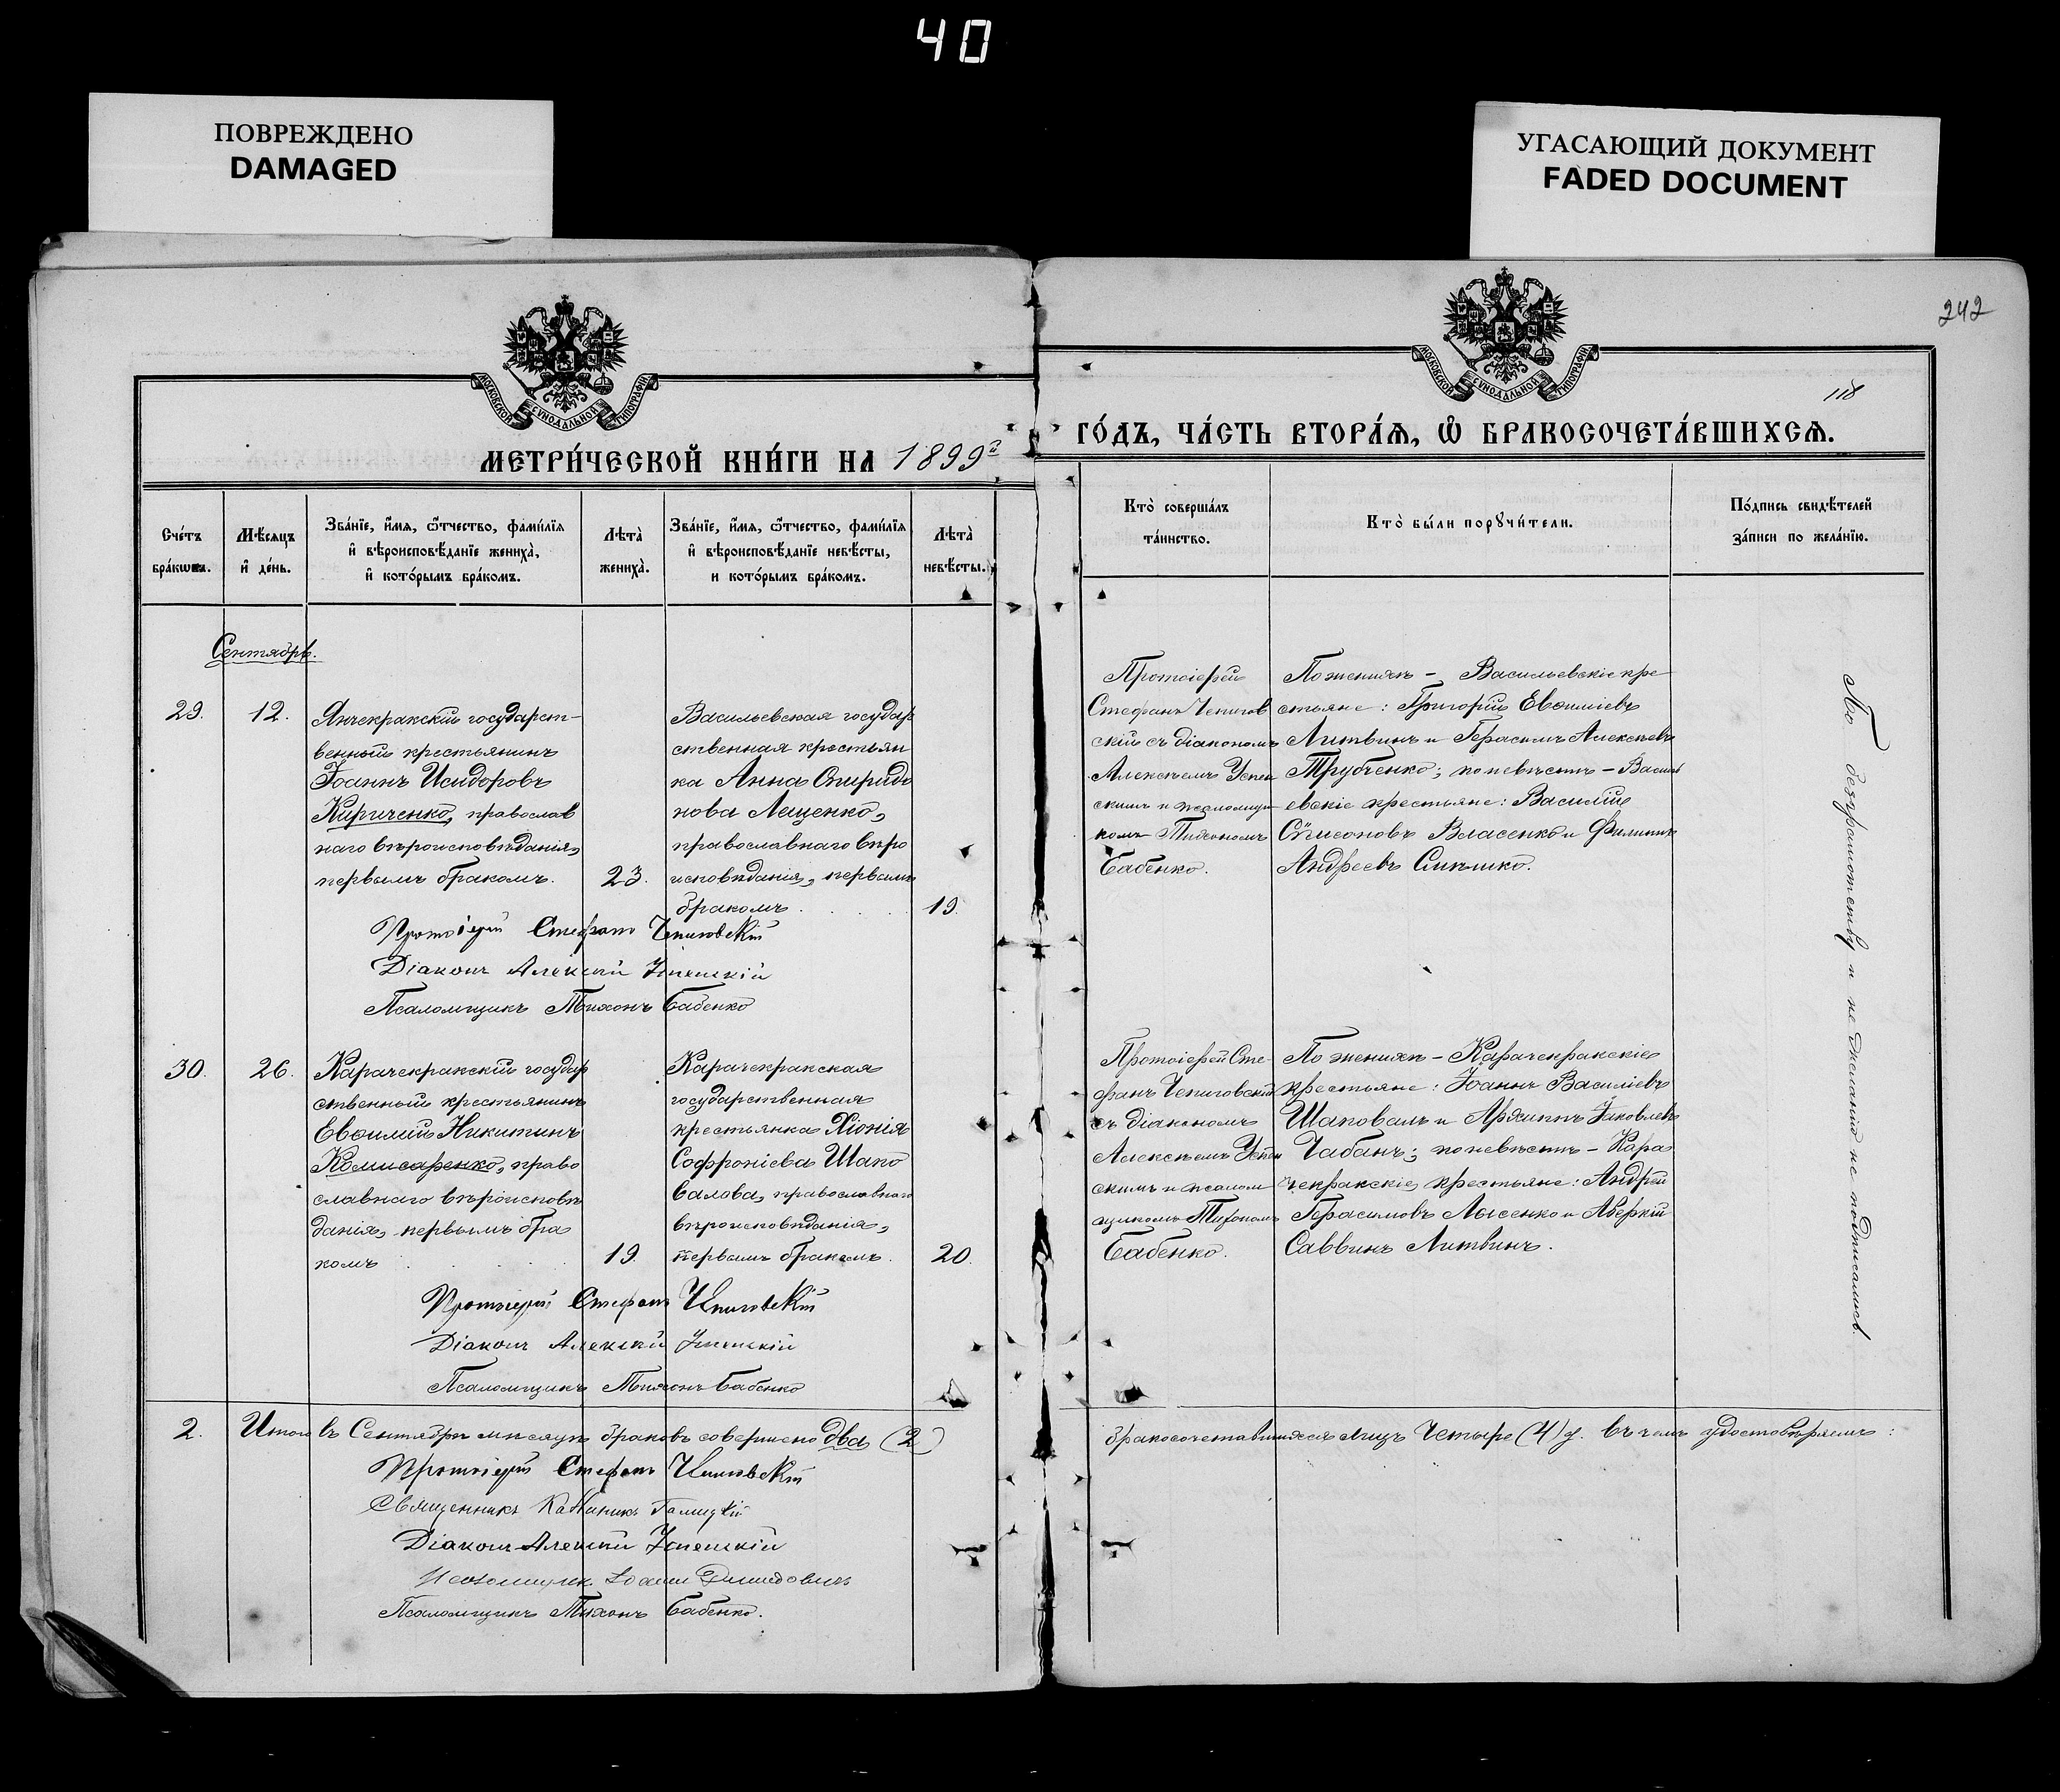 40
ПОВРЕЖДЕНО
DAMAGED
УГАСАЮЩИЙ ДОКУМЕНТ
FADED DOCUMENT
242
118
МОСКОВСКОЙ СѴНОДАЛЬНОЙ ТИПОГРАФІИ
МОСКОВСКОЙ СѴНОДАЛЬНОЙ ТИПОГРАФІИ
МЕТРИ́ЧЕСКОЙ КНИ́ГИ НА 1899 г
ГО́ДЪ, ЧА́СТЬ ВТОРА́Ѧ, Ѡ҆ БРАКОСОЧЕТА́ВШИХСѦ.
Сче́тъ
бра́кѡвъ.
Мѣ́сяцъ
и҆ де́нь.
Зва́нїе, и҆́мѧ, ѻ҆́тчество, фами́лїѧ
и҆ вѣроисповѣ́данїе жениха̀,
и҆ кото́рымъ бра́комъ.
Лѣта̀
жениха̀.
Зва́нїе, и҆́мѧ, ѻ҆́тчество, фами́лїѧ
и҆ вѣроисповѣ́данїе невѣ́сты,
и кото́рымъ бра́комъ.
Лѣта̀
невѣ́сты.
Кто̀ соверша́лъ
та́инство.
Кто̀ бы́ли порꙋчи́тели.
По́дпись свидѣ́телей
за́писи по жела́нїю.
Сентябрь.
29.
12.
Янчекракскій государст-
венный крестьянинъ
Іоаннъ Исидоровъ
Кириченко, православ
наго вѣроисповѣданія,
первымъ бракомъ.
23.
Васильевская государ
ственная крестьян
ка Анна Спиридо
нова Лещенко,
православнаго вѣро
исповѣданія, первымъ
бракомъ.
19.
Протоіерей
Стефанъ Чепигов
скій съ діакономъ
Алексѣемъ Успен
скимъ и псаломщи
комъ Тихономъ
Бабенко.
По женихѣ – Васильевскіе кре
стьяне: Григорій Евѳиміевъ
Литвинъ и Герасимъ Алексѣевъ
Трубченко; по невѣстѣ – Василь
евскіе крестьяне: Василій
Сѵмеоновъ Власенко и Филиппъ
Андреевъ
По безграмотству и не желанію не подписались.
Протоіерей Стефанъ Чепиговскій
Діаконъ Алексій Успенскій
Псаломщикъ Тихонъ Бабенко
30.
26.
Карачекракскій государ
ственный крестьянинъ
Евѳимій Никитинъ
Комисаренко, право
славнаго вѣроисповѣ
данія, первымъ бра
комъ
19.
Карачекракская
государственная
крестьянка Хіонія
Софроніева Шапо
валова, православнаго
вѣроисповѣданія,
первымъ бракомъ.
20.
Протоіерей Сте-
фанъ Чепиговскій
съ діакономъ
Алексѣемъ Успен
скимъ и псалом
щикомъ Тихономъ
Бабенко.
По женихѣ – Карачекракскіе
крестьяне: Іоаннъ Василіевъ
Шаповалъ и Архиппъ Іаковлевъ
Чабанъ; по невѣстѣ – Кара
чекракскіе крестьяне: Андрей
Герасимовъ Лысенко и Аверкій
Саввинъ Литвинъ.
Протоіерей Стефанъ Чепиговскій
Діаконъ Алексій Успенскій
Псаломщикъ Тихонъ Бабенко
2.
Итого въ Сентябрѣ мѣсяцѣ браковъ совершено два (2)
бракосочетавшихся лицъ четыре (4) ч. въ чемъ удостовѣряемъ:
Протоіерей Стефанъ Чепиговскій
Священникъ Галицкій
Діаконъ Алексій Успенскій
Псаломщик Іоанн
Псаломщикъ Тихонъ Бабенко.